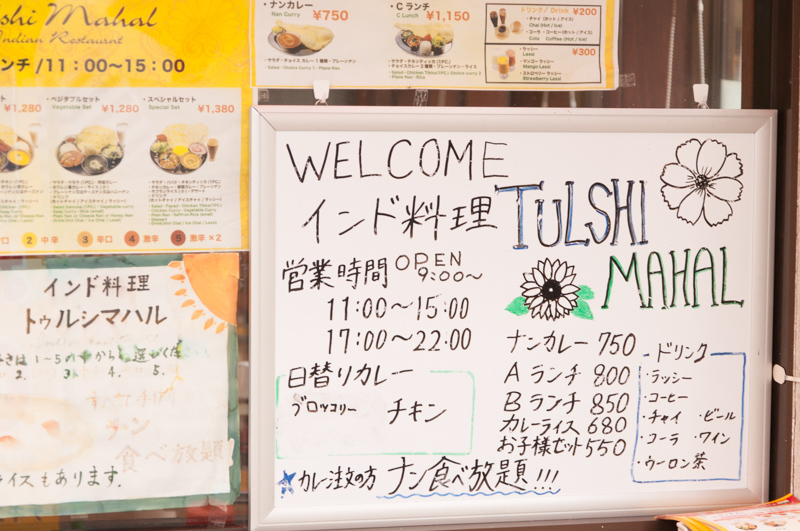 shi Mahal
Indian Restaurant
ンチ/11:00〜15:00
¥1,280
・ベジタブルセット
Vegetable Set
¥1,280
・スペシャルセット
Special Set
¥1,380
辛口 2 中辛 3 辛口 4 激辛 5 激辛×2
・ナンカレー
Nan Curry
¥750
・Cランチ
C Lunch
¥1,150
ドリンク/ Drink ¥200
・チャイ(ホット/アイス)
Chai (Hot / Ice)
・コーラ ・コーヒー(ホット/アイス)
Cola Coffee (Hot / Ice)
・ラッシー
Lassi
¥300
・マンゴー ラッシー
Mango Lassi
・ストロベリー ラッシー
Strawberry Lassi
インド料理
トゥルシマハル
きは1〜5の中から選
2. 3. 4. 5.
ナン
食べ放題!
イスもあります.
WELCOME
インド料理 TULSHI
MAHAL
営業時間 OPEN
9:00〜
11:00〜15:00
17:00〜22:00
日替りカレー
ブロッコリー チキン
ナンカレー 750
Aランチ 800
Bランチ 850
カレーライス 680
お子様セット 550
ドリンク
・ラッシー
・コーヒー
・チャイ ・ビール
・コーラ ・ワイン
・ウーロン茶
カレー注文の方 ナン食べ放題!!!